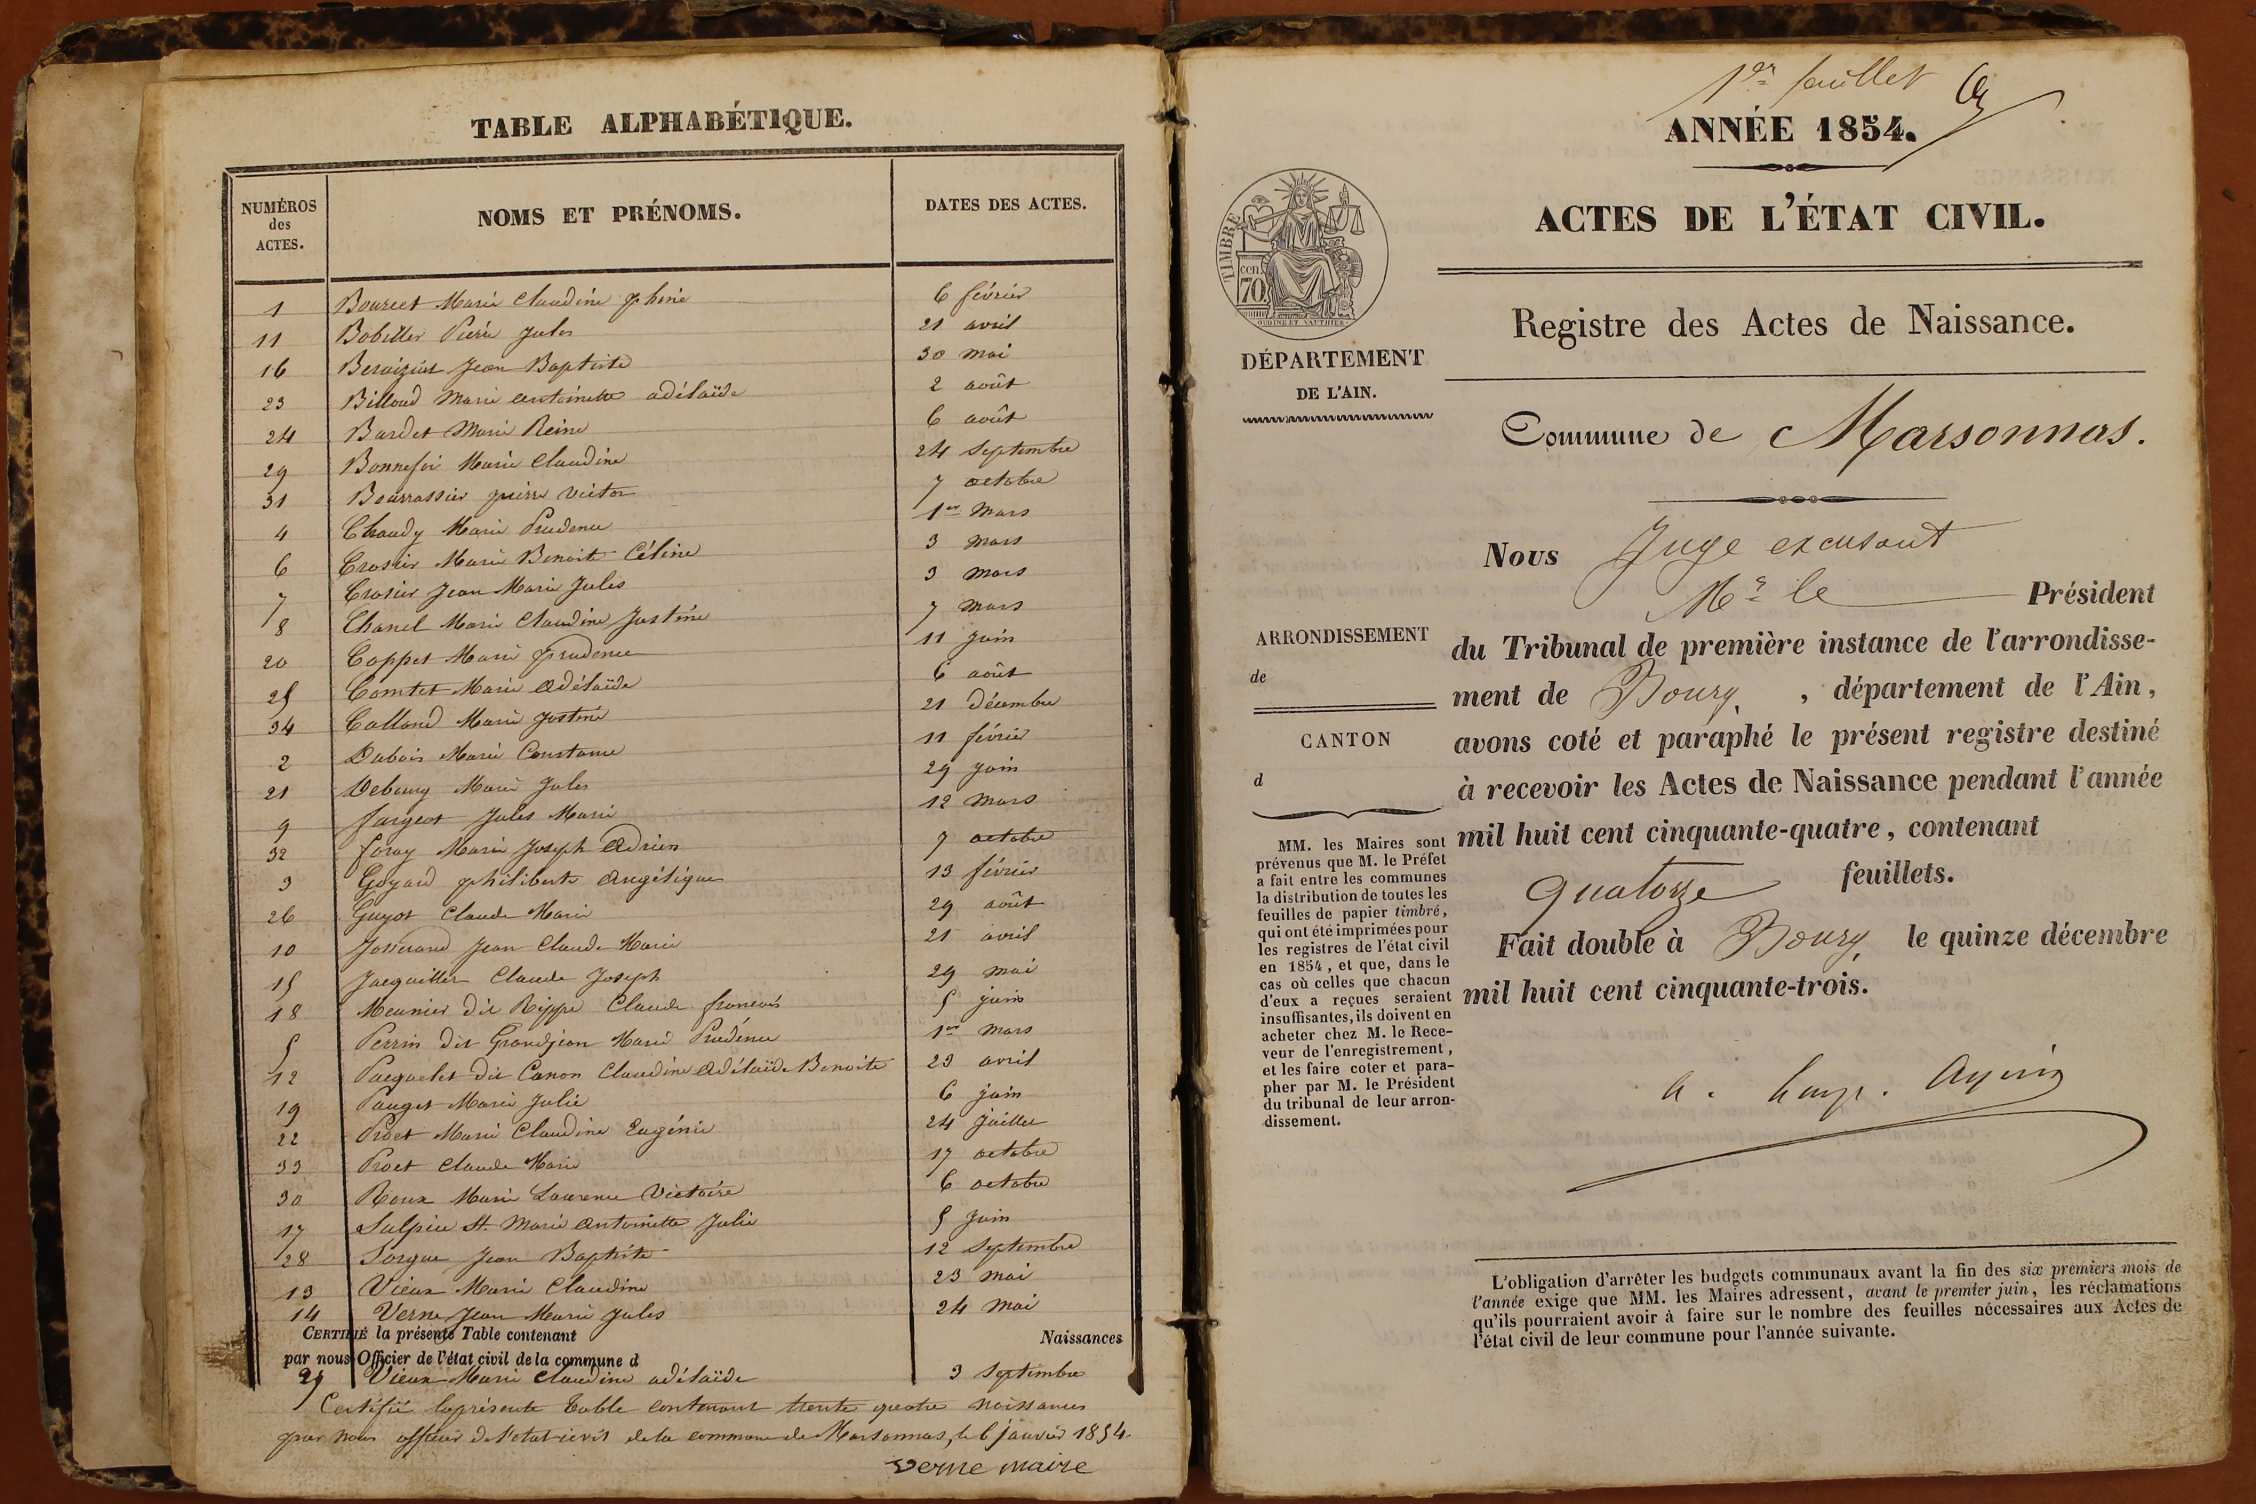 TABLE ALPHABÉTIQUE.
NUMÉROS des ACTES. NOMS ET PRÉNOMS. DATES DES ACTES.
1 Bourcet Marie Claudine 6 février
11 Bobillier Pierre Jules 21 avril
16 Jean Baptiste 30 mai
23 Billoud Marie antoinette adélaïde 2 août
24 Bardet Marie Reine 6 août
29 Bonnefoi Marie Claudine 24 septembre
31 pierre victor 7 octobre
4 Chaudy Marie Prudence 1er Mars
6 Crosier Marie Benoit Céline 3 mars
7 Crosier Jean Marie Jules 3 mars
8 Chanel Marie Claudine Justine 7 mars
20 Coppet Marie prudence 11 juin
25 Comtet Marie adélaïde 6 août
34 Colland Marie Justine 21 décembre
2 Dubois Marie Constance 11 février
21 Debourg Marie Jules 29 juin
9 fargeot Jules Marie 12 mars
32 foray Marie Joseph adrien 7 octobre
3 Goyard philiberte angélique 13 février
26 Guyot Claude Marie 29 août
10 Josserand Jean Claude Marie 21 avril
15 Claude Joseph 29 mai
18 Meunier dit Rippe Claude françois 5 juin
5 Perrin dit Grandjean Marie Prudence 1er mars
12 Pacquelet dit Canon Claudine adélaïde Benoite 23 avril
19 Pauget Marie Julie 6 juin
22 Proet Marie Claudine Eugénie 24 juillet
33 Proet Claude Marie 17 octobre
30 Roux Marie Laurence Victoire 6 octobre
17 Sulpice St. Marie antoinette Julie 5 juin
28 Sorgue Jean Baptiste 12 septembre
13 Vieux Marie Claudine 23 mai
14 Verne Jean Marie Jules 24 mai
CERTIFIÉ la présente Table contenant Naissances
par nous Officier de l'état civil de la commune d
27 Vieux Marie Claudine adélaïde 3 septembre
Certifié la présente table contenant trente quatre naissances
par nous officier de l'etat civil de la commune de Marsonnas, le 6 janvier 1854.
verne maire
1er feuillet
ANNÉE 1854.
ACTES DE L'ÉTAT CIVIL.
TIMBRE
cen. 70
OUDINÉ ET VAUTHIER
Registre des Actes de Naissance.
DÉPARTEMENT
DE L'AIN.
Commune de Marsonnas.
Nous Juge excusant
Mr le Président
du Tribunal de première instance de l'arrondisse-
ment de Bourg, département de l'Ain,
avons coté et paraphé le présent registre destiné
à recevoir les Actes de Naissance pendant l'année
mil huit cent cinquante-quatre, contenant
quatorze feuillets.
Fait double à Bourg, le quinze décembre
mil huit cent cinquante-trois.
ARRONDISSEMENT
de
CANTON
d
MM. les Maires sont
prévenus que M. le Préfet
a fait entre les communes
la distribution de toutes les
feuilles de papier timbré,
qui ont été imprimées pour
les registres de l'état civil
en 1854, et que, dans le
cas où celles que chacun
d'eux a reçues seraient
insuffisantes, ils doivent en
acheter chez M. le Rece-
veur de l'enregistrement,
et les faire coter et para-
pher par M. le Président
du tribunal de leur arron-
dissement.
L'obligation d'arrêter les budgets communaux avant la fin des six premiers mois de
l'année exige que MM. les Maires adressent, avant le premier juin, les réclamations
qu'ils pourraient avoir à faire sur le nombre des feuilles nécessaires aux Actes de
l'état civil de leur commune pour l'année suivante.